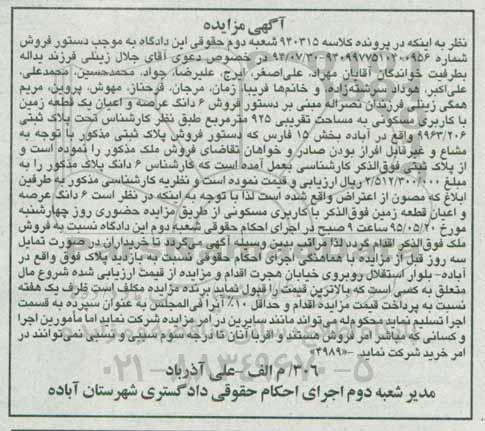 آگهی مزایده
نظر به اینکه در پرونده کلاسه ۹۴۰۳۱۵ شعبه دوم حقوقی این دادگاه به موجب دستور فروش
شماره ۹۴۰۹۹۷۷۵۱۰۲۰۰۹۵۶ ۹۴/۰۷/۳۰ در خصوص دعوی آقای جلال زینلی فرزند یداله
بطرفیت خواندگان آقایان مهراد، علی‌اصغر، ایرج، علیرضا، جواد، محمدحسین، محمدعلی،
علی‌اکبر، هوداد سرشته‌زاده، و خانم‌ها فریبا، زمان، مرجان، فرحناز، مهوش، پروین، مریم
همگی زینلی فرزندان نصراله مبنی بر دستور فروش ۶ دانگ عرصه و اعیان یک قطعه زمین
با کاربری مسکونی به مساحت تقریبی ۹۲۵ مترمربع طبق نظر کارشناس تحت پلاک ثبتی
۹۹۶۳/۲۰۶ واقع در آباده بخش ۱۵ فارس که دستور فروش پلاک ثبتی مذکور با توجه به
مشاع و غیرقابل افراز بودن صادر و خواهان تقاضای فروش ملک مذکور را نموده است و
از پلاک ثبتی فوق‌الذکر کارشناسی بعمل آمده است که کارشناس ۶ دانگ پلاک مذکور را به
مبلغ ۲/۵۱۲/۳۰۰/۰۰۰ ریال ارزیابی و قیمت نموده است و نظریه کارشناسی مذکور به طرفین
ابلاغ که مصون از اعتراض واقع شده است لذا با توجه به اینکه در نظر است ۶ دانگ عرصه
و اعیان قطعه زمین فوق‌الذکر با کاربری مسکونی از طریق مزایده حضوری روز چهارشنبه
مورخ ۹۵/۰۵/۲۰ ساعت ۹ صبح در اجرای احکام حقوقی شعبه دوم این دادگاه نسبت به فروش
ملک فوق‌الذکر اقدام گردد لذا مراتب بدین وسیله آگهی می‌گردد تا خریداران در صورت تمایل
سه روز قبل از مزایده با هماهنگی اجرای احکام حقوقی نسبت به بازدید پلاک فوق واقع در
آباده- بلوار استقلال روبروی خیابان هجرت اقدام و مزایده از قیمت ارزیابی شده شروع مال
متعلق به کسی است که بالاترین قیمت را قبول نماید برنده مزایده مکلف است ظرف یک هفته
نسبت به پرداخت قیمت مزایده اقدام و حداقل ۱۰٪ را فی‌المجلس به عنوان سپرده به قسمت
اجرا تسلیم نماید محکوم‌له می‌تواند مانند سایرین در امر مزایده شرکت نماید اما مأمورین اجرا
و کسانی که مباشر امر فروش هستند و اقربا آنان تا درجه سوم سببی و نسبی نمی‌توانند در
امر خرید شرکت نمایند. -«۴۹۸۹»
۳۰۶/ م الف -علی آذرباد
مدیر شعبه دوم اجرای احکام حقوقی دادگستری شهرستان آباده
۰۲۱-۸۸۳۴۹۶۷۰-۵